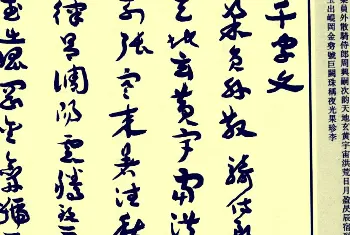 梁員外散騎侍郎周興嗣次韵天地玄黄宇宙洪荒日月盈昃辰宿
玉出崐岡金劍號巨闕珠稱夜光果珍李
千字文
梁員外散騎侍
天地玄黄宇宙洪
列張寒来暑往秋
律吕調陽雲騰致雨
玉出崐岡金劍號